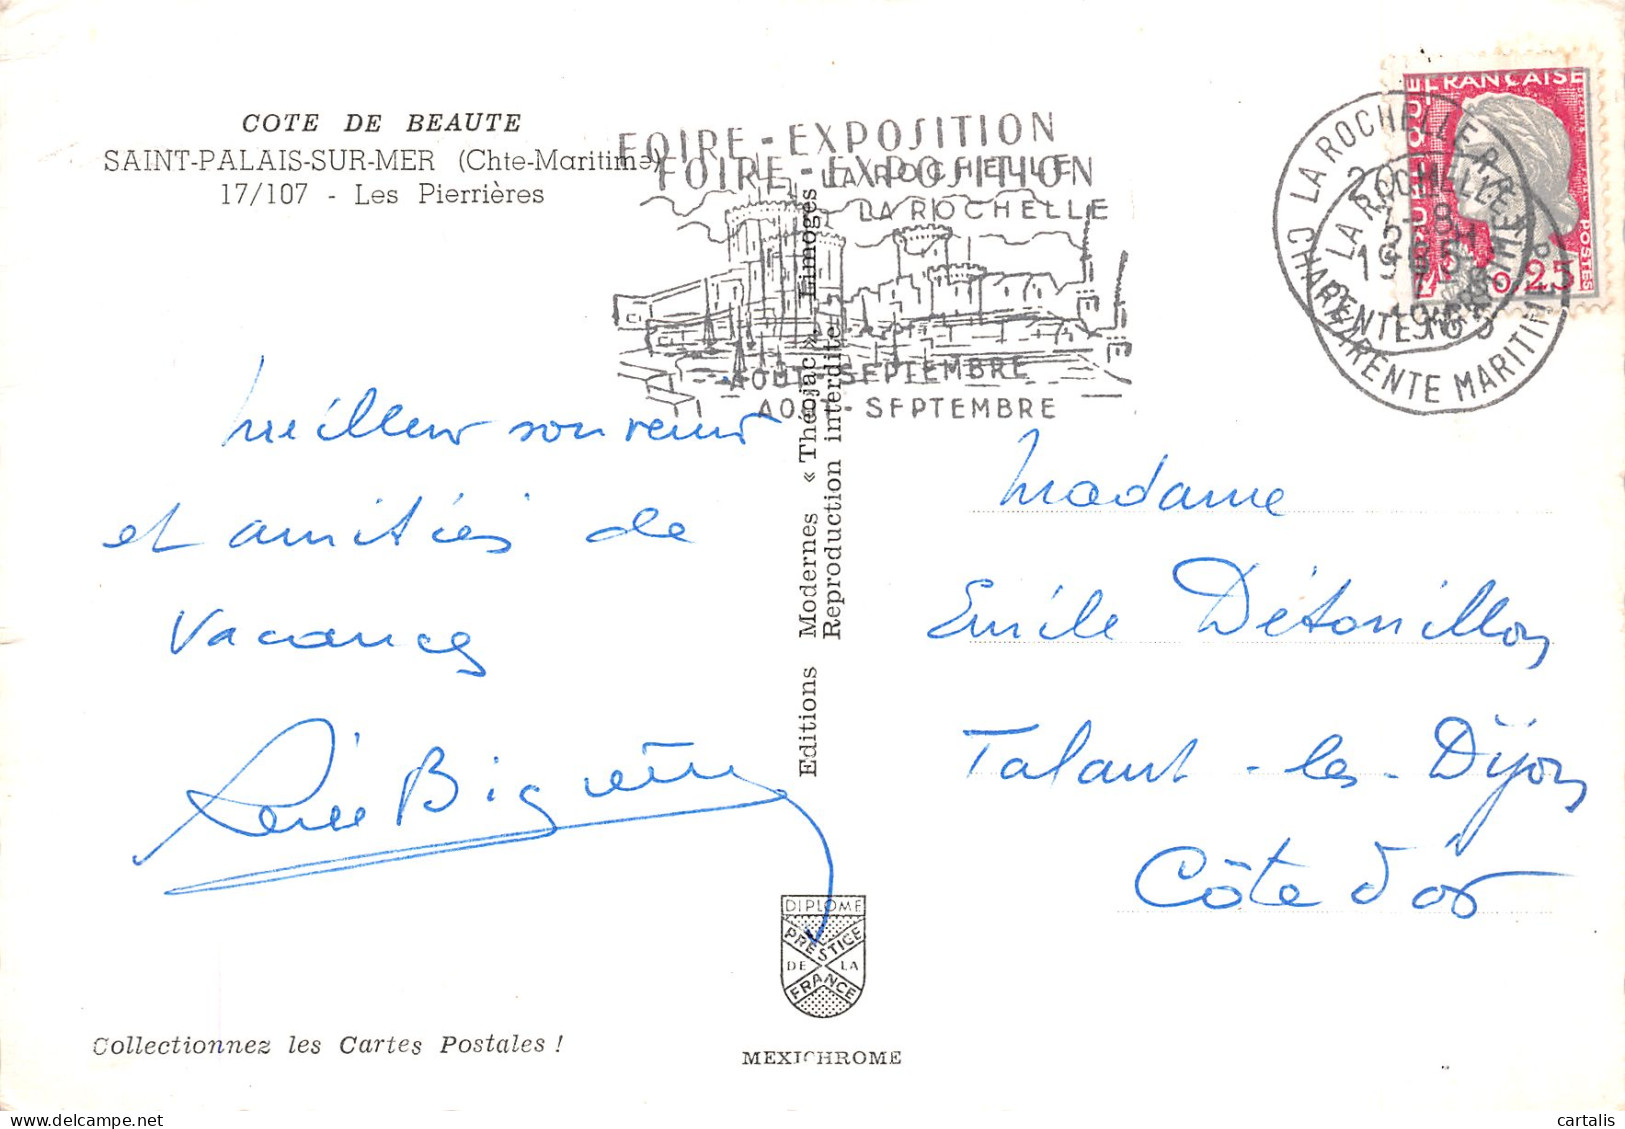 COTE DE BEAUTE
SAINT-PALAIS-SUR-MER (Chte-Maritime)
17/107 - Les Pierrières
FOIRE-EXPOSITION
LA ROCHELLE
FOIRE-EXPOSITION
LA ROCHELLE
AOUT-SEPTEMBRE
AOUT-SEPTEMBRE
LA ROCHELLE R.P.
CHARENTE MARITIME
1965
LA ROCHELLE R.P.
CHARENTE MARITIME
FRANÇAISE
POSTES
0,25
meilleur souvenir
et amitiés de
Vacances
Madame
Emile Détouillon
Talant-les-Dijon
Côte d'or
Editions Modernes « Théojac » Limoges
Reproduction interdite
DIPLOME
PRESTIGE
DE LA
FRANCE
Collectionnez les Cartes Postales !
MEXICHROME
cartalis